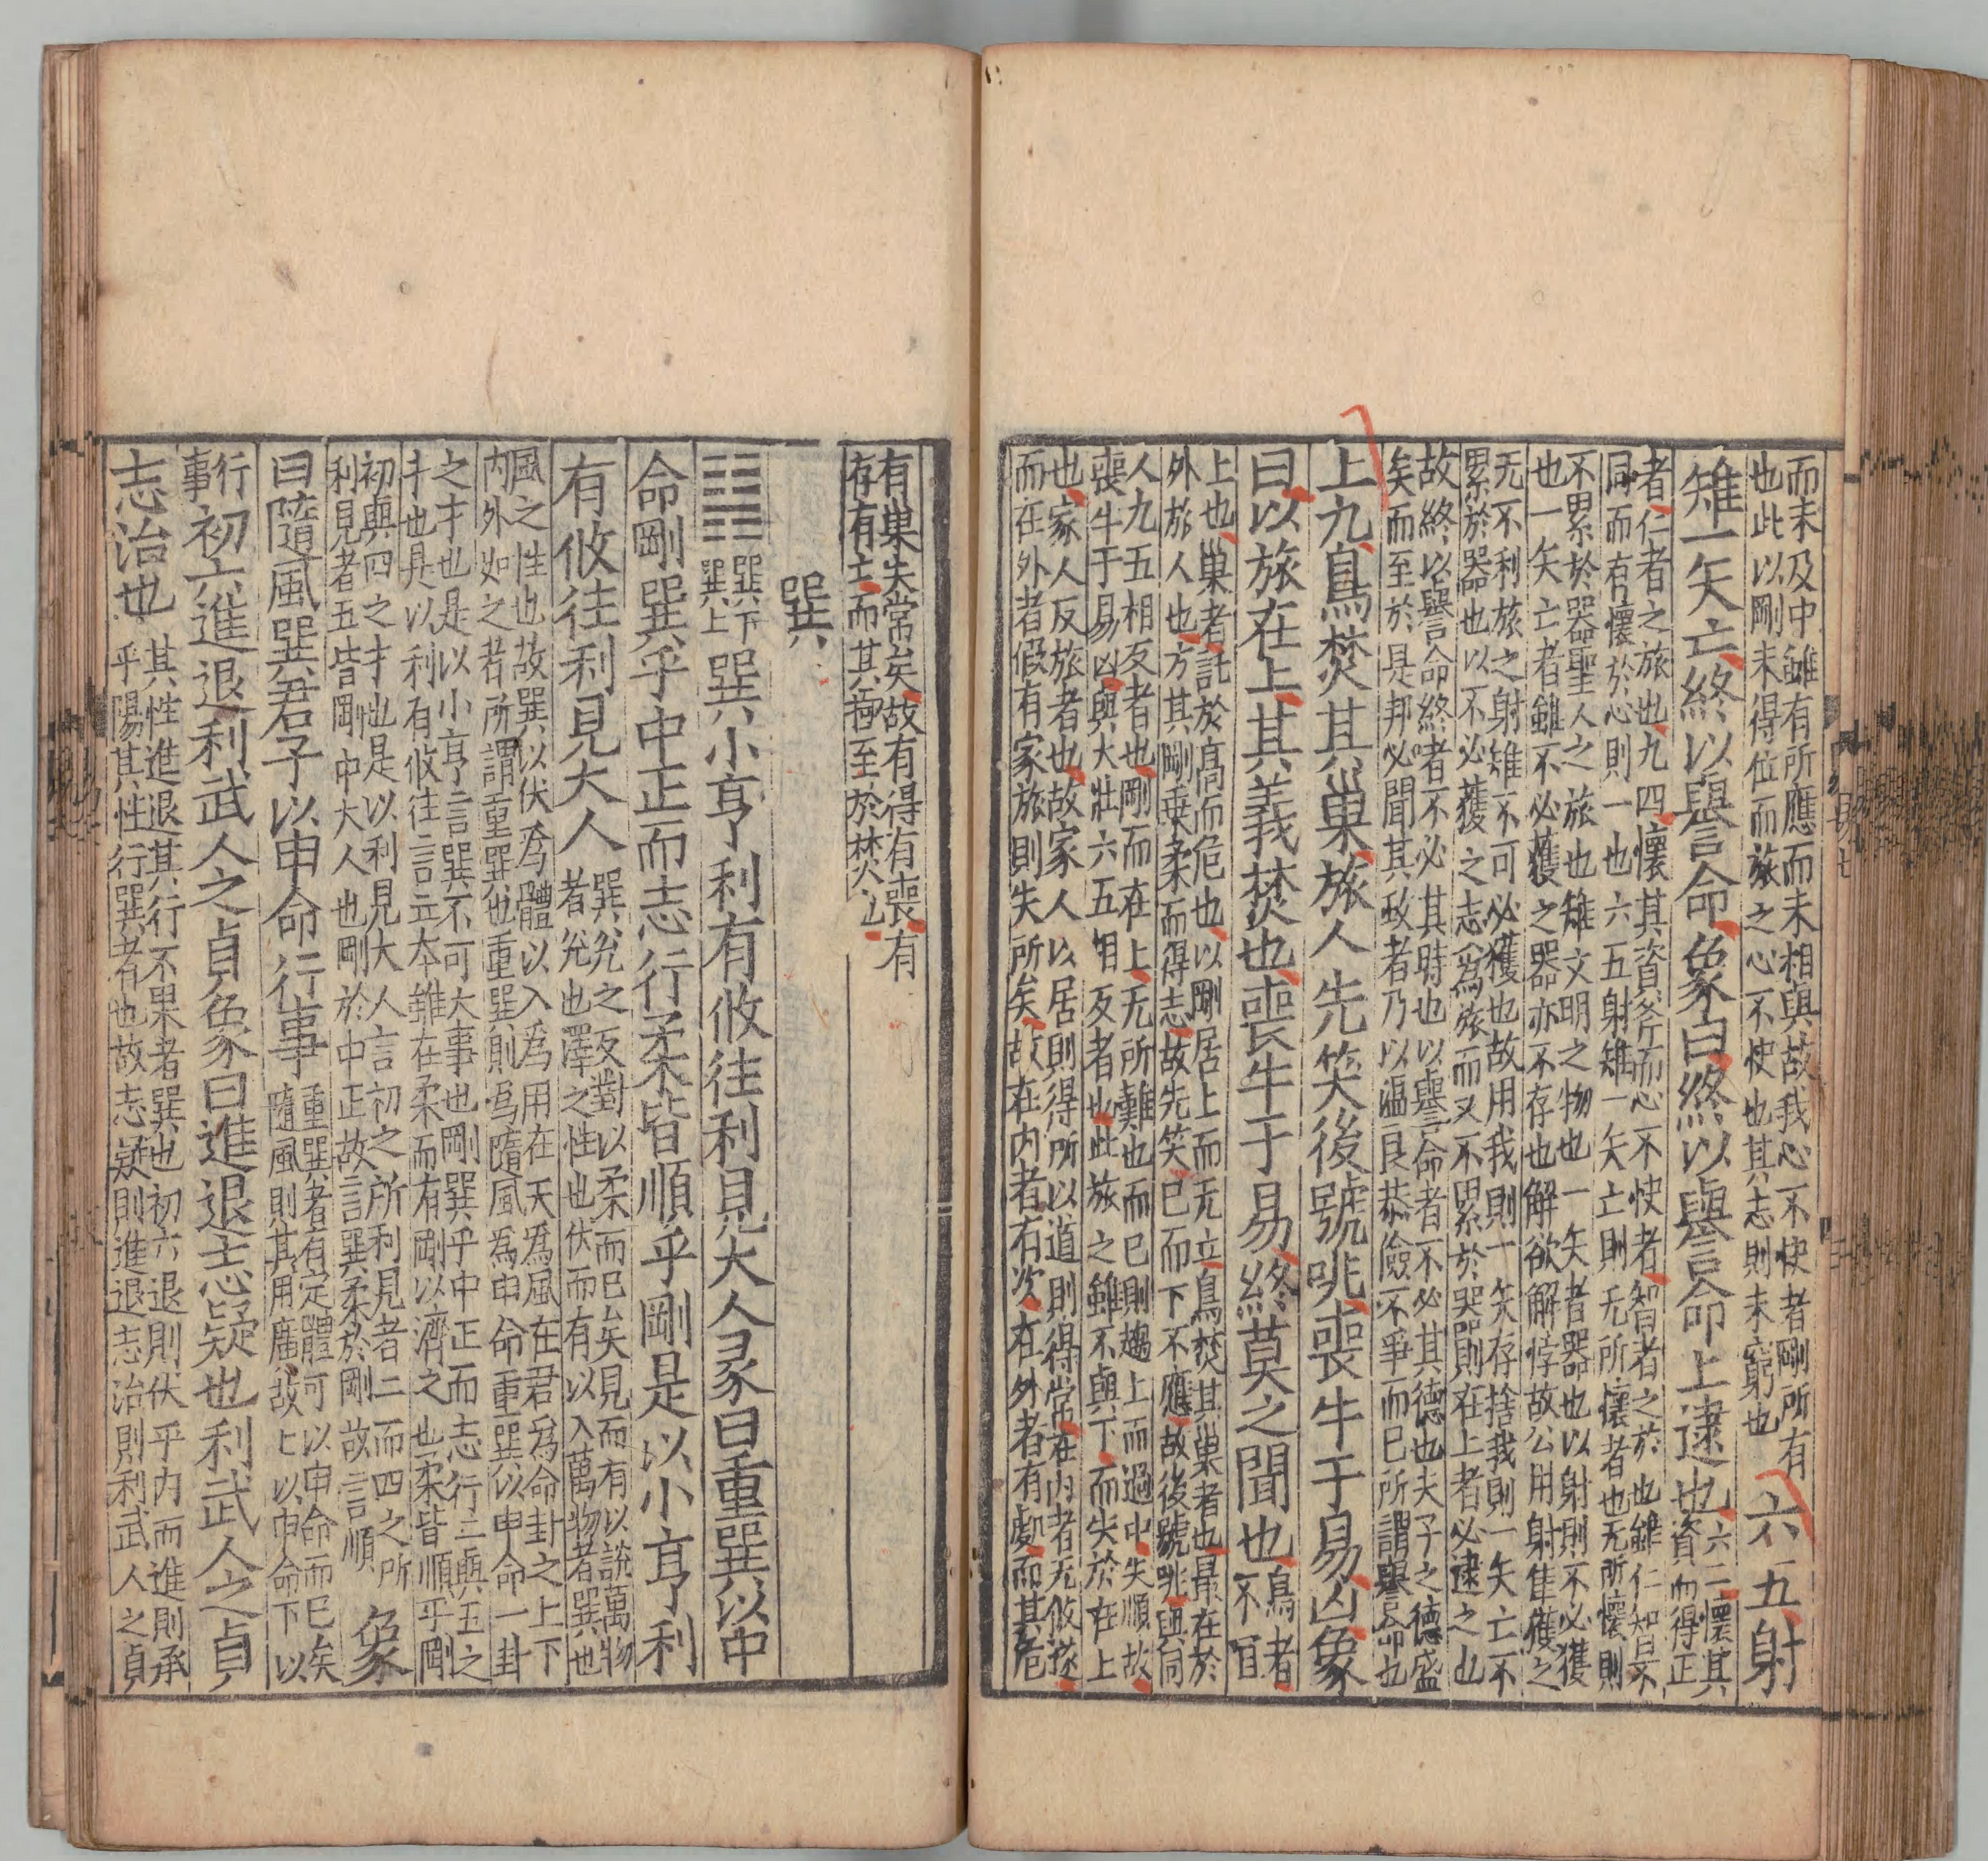 而未及中雖有所應而未相與故我心不快者剛所有
也此以剛未得位而旅之心不快也其志則未窮也
六五射
雉一矢亡終以譽命象曰終以譽命上逮也
六二懷其
資而得正
者仁者之旅也九四懷其資斧而心不快者智者之於也雖仁知不
同而有懷於心則一也六五射雉一矢亡則无所懷者也无所懷則
不累於器聖人之旅也雉文明之物也一矢者器也以射則不必獲
也一矢亡者雖不必獲之器亦不存也解欲解悖故公用射隼獲之
无不利旅之射雉不可必獲也故用我則一矢存捨我則一矢亡不
累於器也以不必獲之志為旅而又不累於器則在上者必逮之也
故終以譽命終者不必其時也以譽命者不必其德也夫子之德盛
矣而至於是邦必聞其政者乃以溫良恭儉不爭而已所謂譽命也
上九鳥焚其巢旅人先笑後號咷喪牛于易凶象
曰以旅在上其義焚也喪牛于易終莫之聞也
鳥者
不宜
上也巢者託於高而危也以剛居上而无立鳥焚其巢者也最在於
外旅人也方其剛乗柔而得志故先笑已而下不應故後號咷與同
人九五相反者也剛而在上无所難也而已則趨上而過中失順故
喪牛于易凶與大壯六五相反者也此旅之雖不與下而失於在上
也家人反旅者也故家人以居則得所以道則得常在内者无攸遂
而在外者假有家旅則失所矣故在内者右次在外者有處而其危
有巢失常矣故有得有喪有
存有亡而其極至於焚也
巽
巽下
巽上
巽小亨利有攸往利見大人彖曰重巽以申
命剛巽乎中正而志行柔皆順乎剛是以小亨利
有攸往利見大人
巽兌之反對以柔而已矣見而有以說萬物
者兌也澤之性也伏而有以入萬物者巽也
風之性也故巽以伏為體以入為用在天為風在君為命卦之上下
内外如之者所謂重巽也重巽則為隨風為申命重巽以申命一卦
之才也是以小亨言巽不可大事也剛巽乎中正而志行二與五之
才也是以利有攸往言立本雖在柔而有剛以濟之也柔皆順乎剛
初與四之才也是以利見大人言初之所利見者二而四之所
利見者五皆剛中大人也剛於中正故言巽柔於剛故言順
象
曰隨風巽君子以申命行事
重巽者有定體可以申命而已矣
隨風則其用廣故上以申命下以
行
事
初六進退利武人之貞象曰進退志疑也利武人之貞
志治也
其性進退其行不果者巽也初六退則伏乎内而進則承
乎陽其性行巽者也故志疑則進退志治則利武人之貞